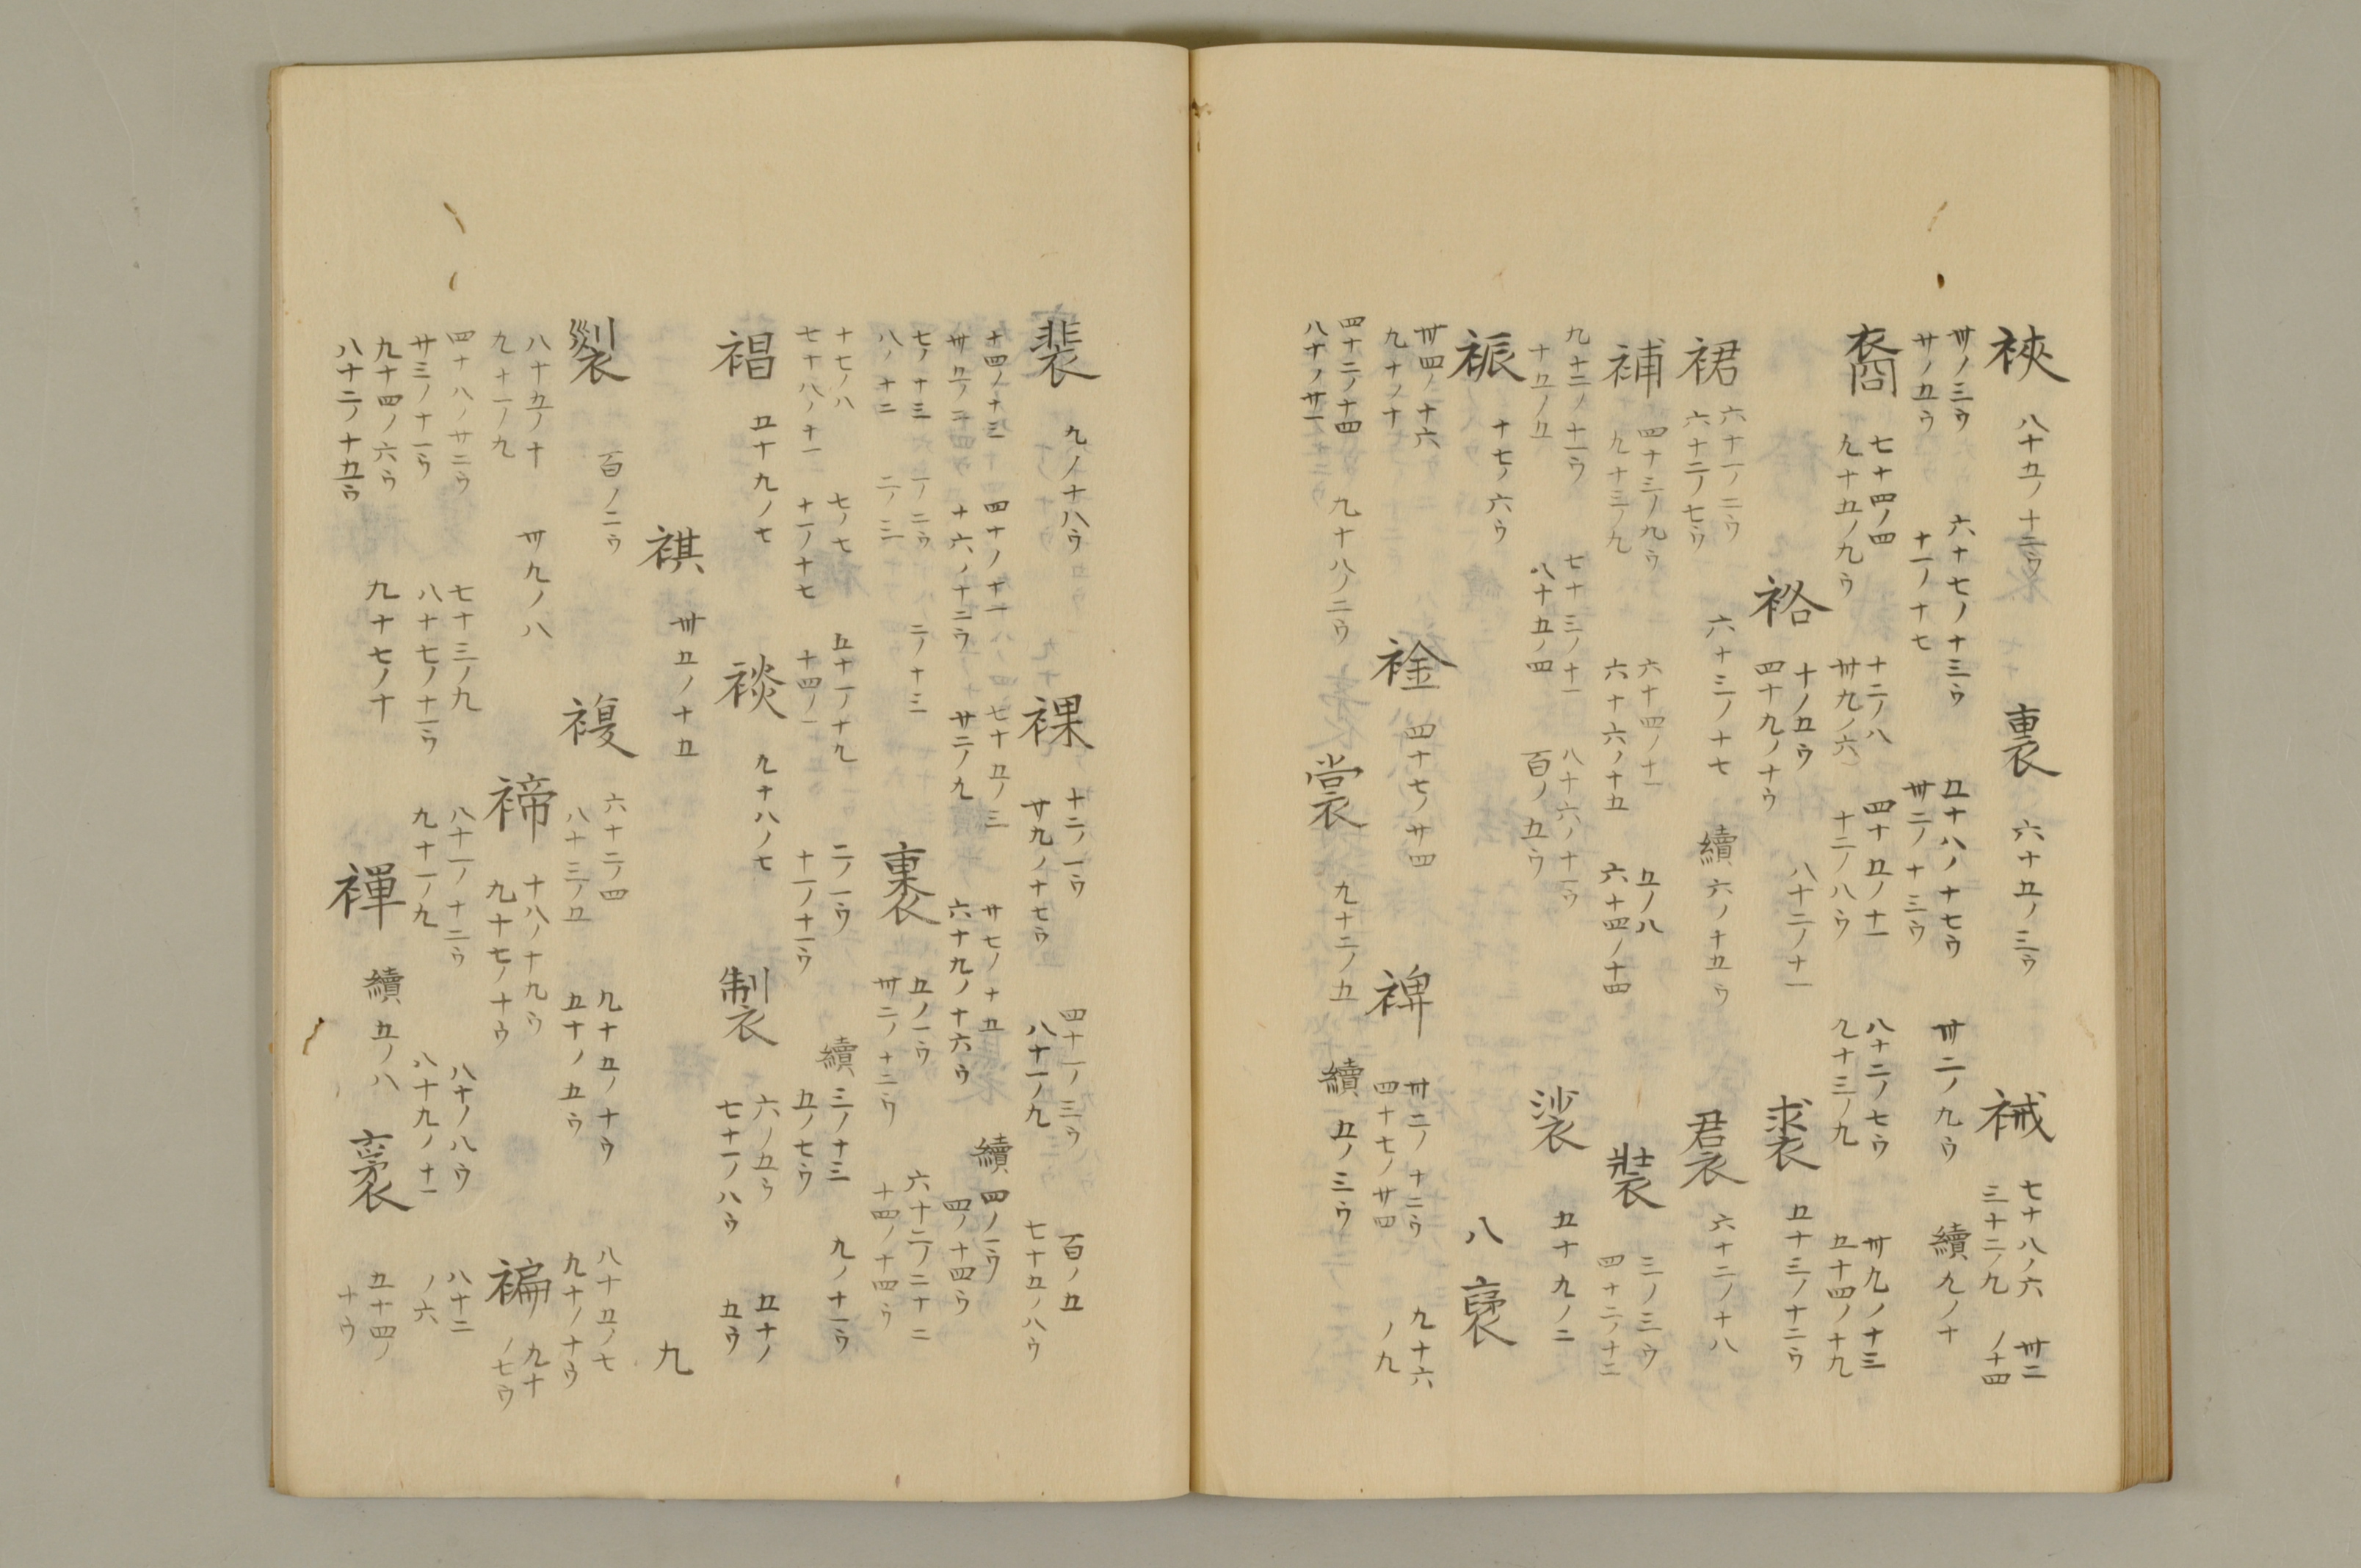 裌 八十五ノ十二ウ 裏 六十五ノ三ウ 裓 七十八ノ六 卅二
三十二ノ九 ノ十四
卅ノ三ウ 六十七ノ十三ウ 五十八ノ十七ウ 卅二ノ九ウ 續九ノ十
廿ノ五ウ 十一ノ十七 卅二ノ十三ウ
裔 七十四ノ四 十二ノ八 四十五ノ十一 八十二ノ七ウ 卅九ノ十三
九十五ノ九ウ 卅九ノ六 十二ノ八ウ 九十三ノ九 五十四ノ十九
裕 十ノ五ウ 八十二ノ十一 裘 五十三ノ十二ウ
四十九ノ十ウ
裙 六十一ノ二ウ 六十三ノ十七 續六ノ十五ウ 裠 六十二ノ十八
六十二ノ七ウ
補 四十三ノ九ウ 六十四ノ十一 五ノ八 裝 三ノ三ウ
九十三ノ九 六十六ノ十五 六十四ノ十四 四十二ノ十二
九十二ノ十一ウ 七十三ノ十一 八十六ノ十一ウ 裟 五十九ノ二
十五ノ五 八十五ノ四 百ノ五ウ
裖 十七ノ六ウ 八 裦
卅四ノ十六 䘳 四十七ノ廿四 裨 卅二ノ十二ウ 九十六
九十ノ十 四十七ノ廿四 ノ九
四十二ノ十四 九十八ノ二ウ 裳 九十二ノ五 續五ノ三ウ
八十ノ廿一
裴 九ノ十八ウ 裸 十二ノ一ウ 四十一ノ三ウ 百ノ五
廿九ノ十七ウ 八十一ノ九 七十五ノ八ウ
十四ノ十三 四十ノ十一 七十五ノ三 廿七ノ十五 續四ノ一ウ
卅五ノ二 十六ノ十二ウ 廿二ノ九 六十九ノ十六ウ 四ノ十四ウ
七ノ十三 一ノ二ウ 二ノ十三 裹 五ノ一ウ 六十二ノ二十二
八ノ十二 二ノ三 卅二ノ十二ウ 十四ノ十四ウ
十七ノ八 七ノ七 五十一ノ十九 二ノ一ウ 續三ノ十三 九ノ十一ウ
七十八ノ十一 十一ノ十七 十四ノ一 十一ノ十一ウ 五ノ七ウ
裮 五十九ノ七 裧 九十八ノ七 製 六ノ五ウ 五十ノ
七十一ノ八ウ 五ウ
祺 卅五ノ十五 九
䙋 百ノ二ウ 複 六十二ノ四 九十五ノ十ウ 八十五ノ七
八十三ノ五 五十ノ五ウ 九十ノ十ウ
八十五ノ十 卅九ノ八 褅 十八ノ十九ウ 褊 九十
九十一ノ九 九十七ノ十ウ ノ七ウ
四十八ノ廿二ウ 七十三ノ九 八十一ノ十二ウ 八十ノ八ウ 八十二
廿三ノ十一ウ 八十七ノ十一ウ 九十一ノ九 八十九ノ十一 ノ六
九十四ノ六ウ 九十七ノ十 褌 續五ノ八 褎 五十四ノ
八十二ノ十五ウ 十ウ